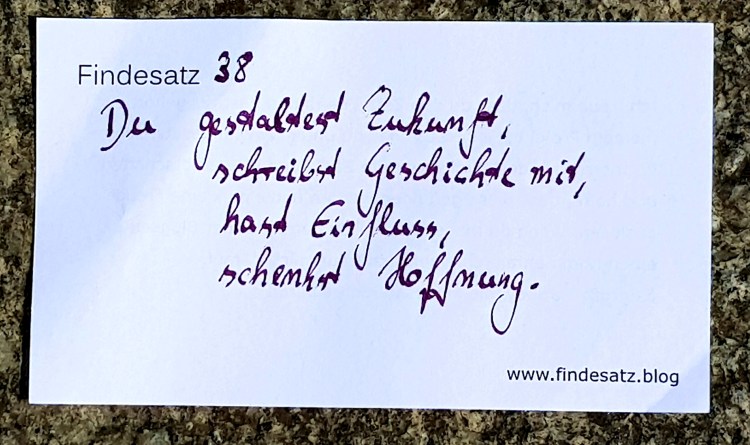 Findesatz 38
Du gestaltest Zukunft,
schreibst Geschichte mit,
hast Einfluss,
schenkst Hoffnung.
www.findesatz.blog